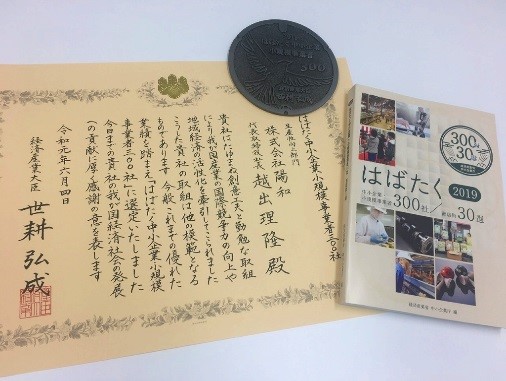 はばたく中小企業・小規模事業者三〇〇社
生産性向上部門
株式会社陽和
代表取締役社長
越出理隆殿
貴社にはたゆまぬ創意工夫と勤勉な取組
により我が国産業の国際競争力の向上や
地域経済の活性化を牽引してこられました
こうした貴社の取組は他の模範となる
ものであります 今般 これまでの優れた
業績を踏まえ「はばたく中小企業・小規模
事業者三〇〇社」に選定いたしました
今日までの貴社の我が国経済社会の発展
への貢献に厚く感謝の意を表します
令和元年六月四日
経済産業大臣
世耕弘成
300
300社
30選
はばたく
2019
中小企業
小規模事業者
300社/
商店街
30選
経済産業省 中小企業庁 編